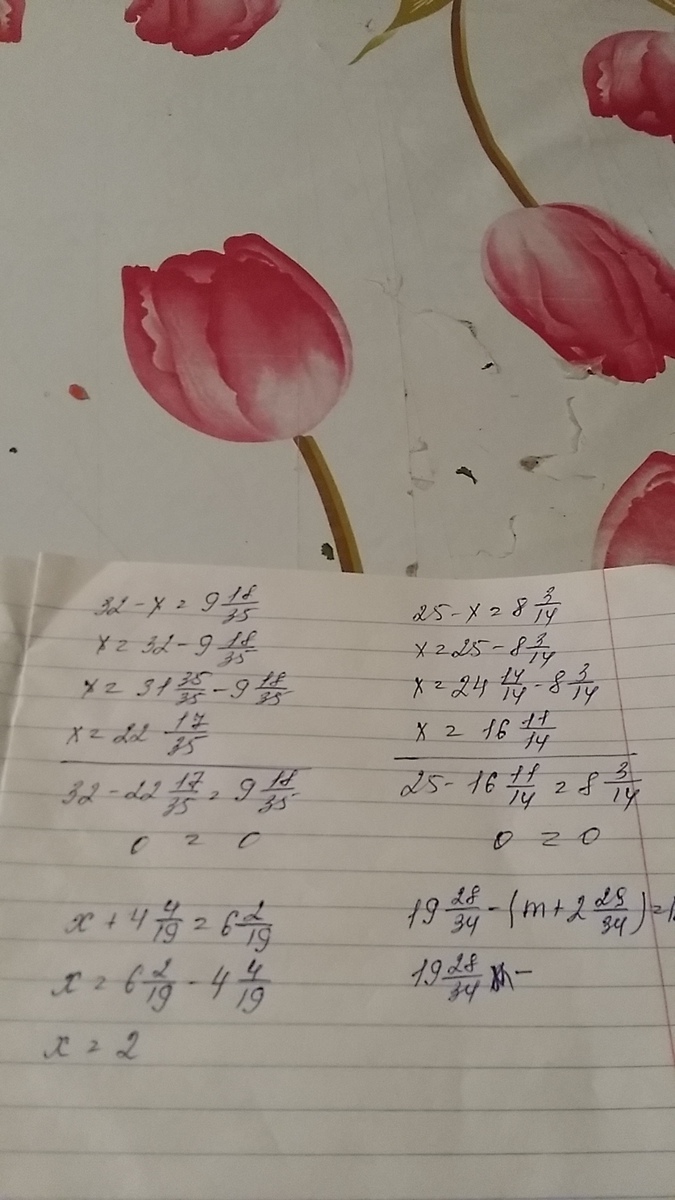 32 - x = 9 18/35
x = 32 - 9 18/35
x = 31 35/35 - 9 18/35
x = 22 17/35
32 - 22 17/35 = 9 18/35
0 = 0
25 - x = 8 3/14
x = 25 - 8 3/14
x = 24 14/14 - 8 3/14
x = 16 11/14
25 - 16 11/14 = 8 3/14
0 = 0
x + 4 4/19 = 6 2/19
x = 6 2/19 - 4 4/19
x = 2
19 28/34 - (m + 2 29/34) =
19 28/34 -